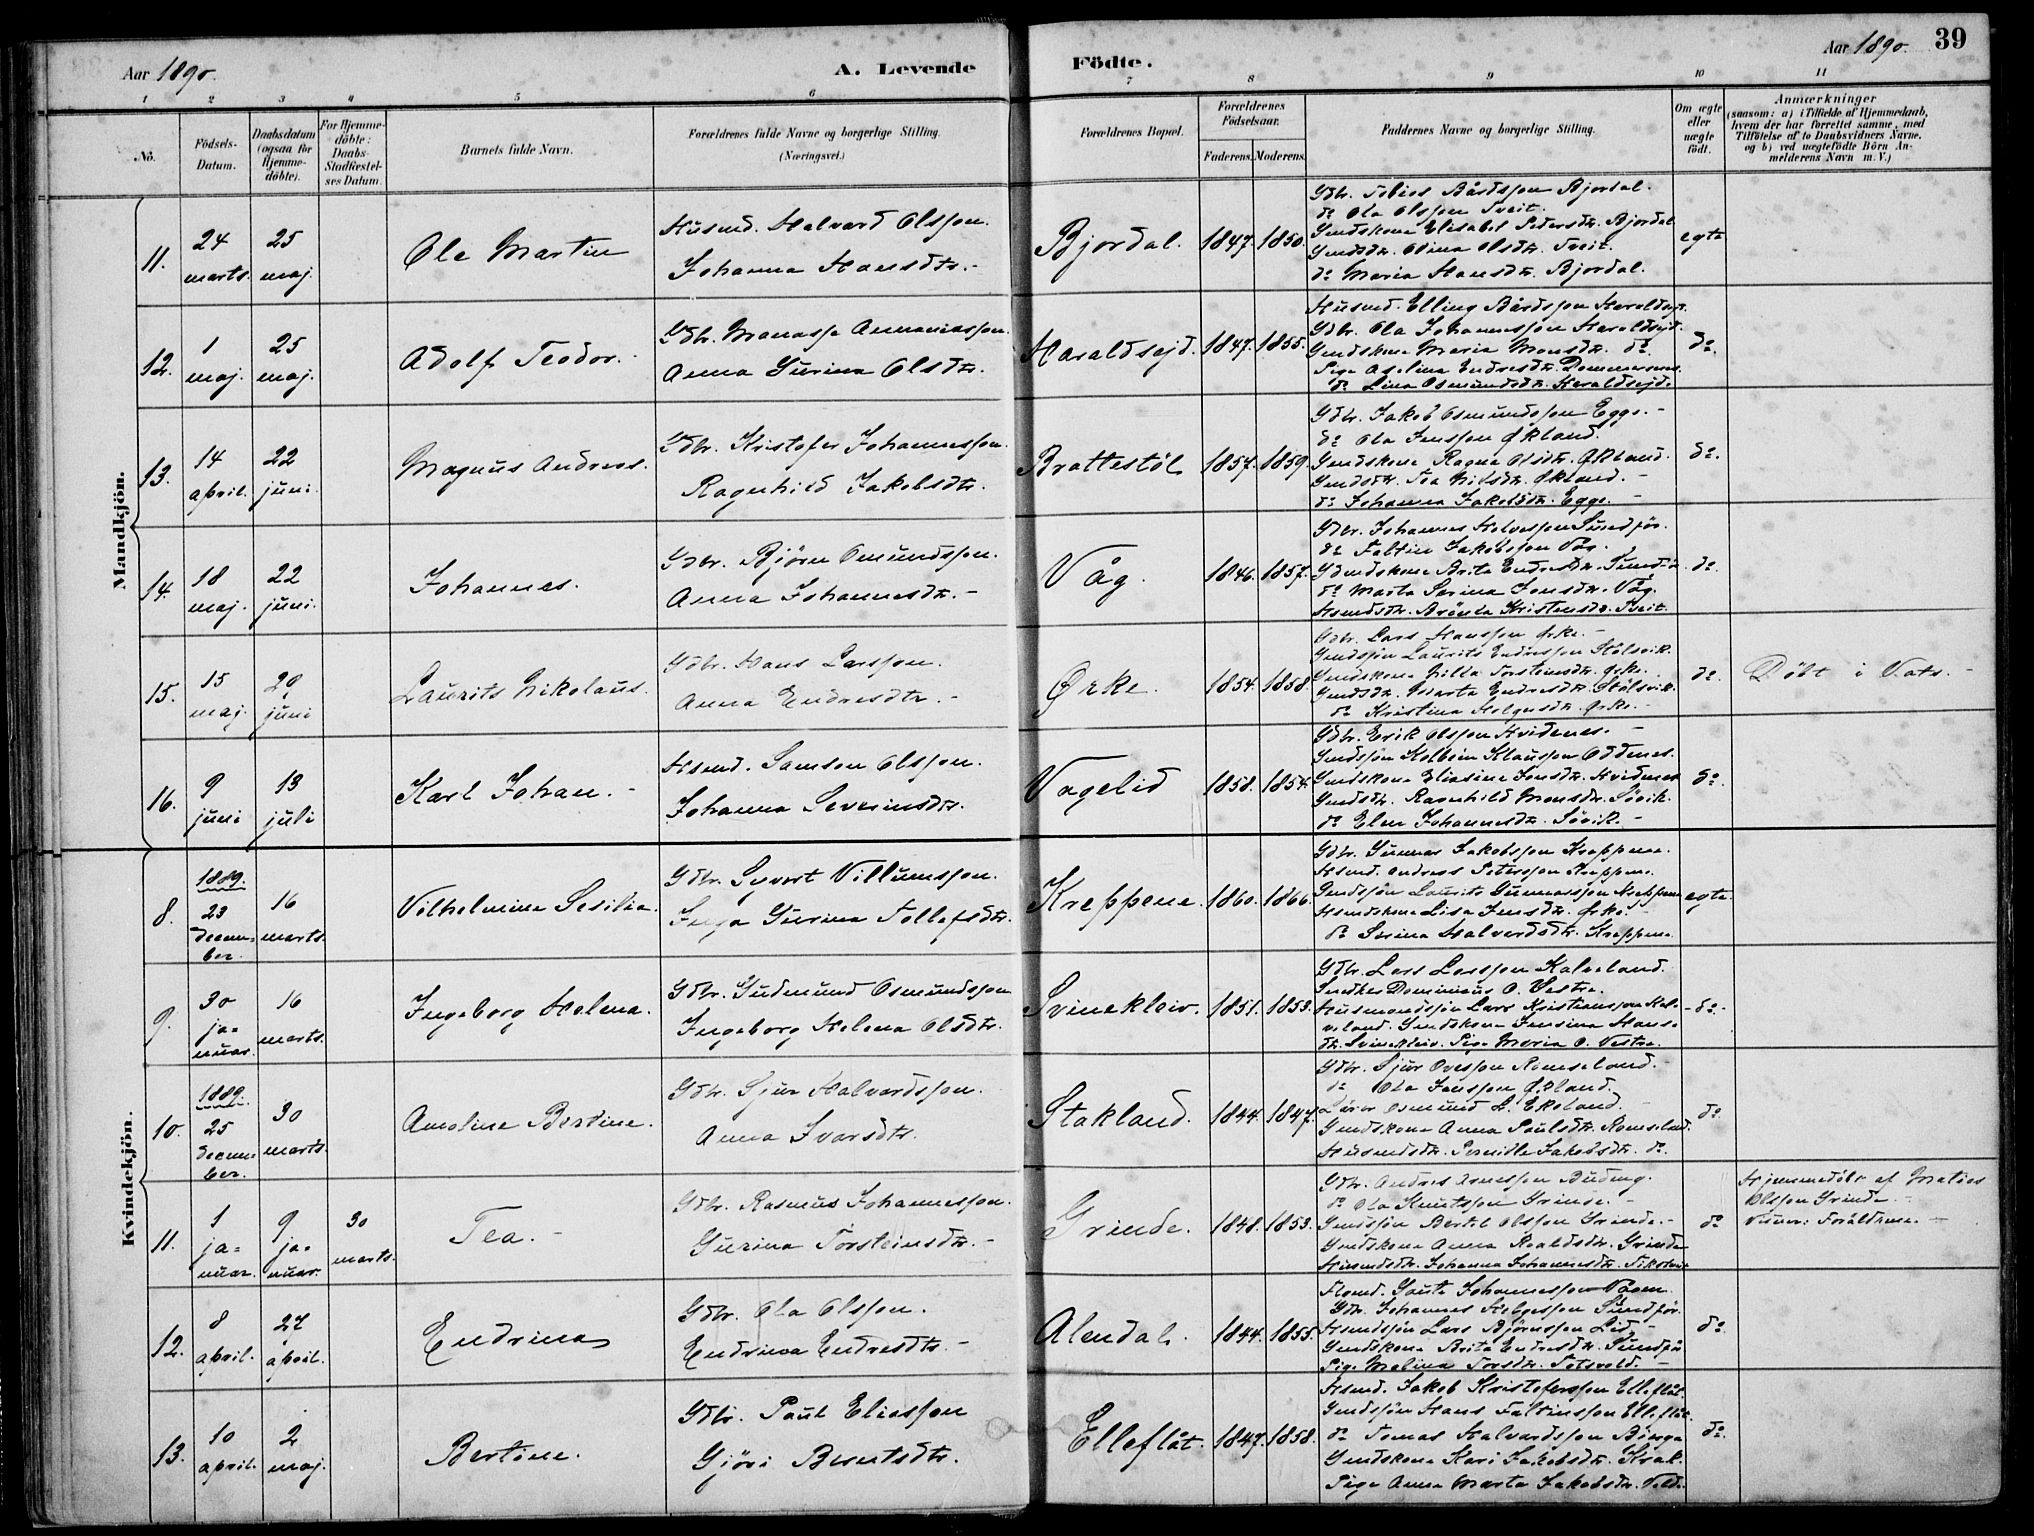 Aar 1890.
A. Levende Födte.
Aar 1890. 39
1 2 3 4 5 6 7 8 9 10 11
No.
Födsels-Datum.
Daabsdatum (ogsaa for Hjemme-döbte).
For Hjemme-döbte: Daabs-Stadfæstel-ses Datum.
Barnets fulde Navn.
Forældrenes fulde Navne og borgerlige Stilling.
(Næringsvei.)
Forældrenes Bopæl.
Forældrenes Födselsaar.
Faderens. Moderens.
Faddernes Navne og borgerlige Stilling.
Om ægte eller uægte födt.
Anmærkninger
(saasom: a) i Tilfælde af Hjemmedaab,
hvem der har forrettet samme, med
Tilföielse af to Daabsvidners Navne.
og b) ved uægtefödte Börn An-
melderens Navn m. V.)
Mandkjön.
11. 24 marts. 25 maj. Ole Martin
Husmd. Halvard Olsson.
Johanna Hansdtr.
Bjordal. 1847. 1850.
Gdbr. Tobias Bårdsson Bjordal.
do Ola Olsson Tveit.
Gmdskone Elisabet Petersdtr. Bjordal
Gmdsdtr. Olina Olsdtr. Tveit.
do Maria Hansdtr. Bjordal.
egte
12. 1 maj. 25 maj. Adolf Teodor.
Gdbr. Manasse Annaniasson.
Anna Gurina Olsdtr.
Haraldsejd. 1847. 1855.
Husmd. Elling Bårdsson Haraldsejd.
Gdbr. Ola Johannesson Haraldsejd.
Gmdskone Maria Monsdtr. do.
Pige Aselina Endresdtr. Dommersnes.
do. Lina Osmundsdtr. Haraldsejd.
do.
13. 14 april. 22 juni. Magnus Andreas.
Gdbr. Kristofer Johannesson.
Ragnhild Jakobsdtr.
Brattestöl 1857. 1859.
Gdbr. Jakob Osmundsson Egge.
do Ola Jensson Økland.
Gmdskone Ragna Olsdtr. Økland.
Gmdsdtr. Tea Nilsdtr. Økland.
do Johanna Jakobsdtr. Egge.
do.
14. 18 maj. 22 juni. Johannes.
Gdbr. Björn Omundsson.
Anna Johannesdtr.
Våg. 1846. 1857.
Gdbr. Johannes Helgesson Sundför.
do Faltin Jakobsson Våg.
Gmdskone Brita Endresdtr. Sundför
do Marta Serina Jensdtr. Våg.
Hsmdsdtr. Brönla Kristensdtr. Tveit.
do.
15. 15 maj. 29 juni Laurits Nikolaus.
Gdbr. Hans Larsson.
Anna Endresdtr.
Ørke. 1854. 1858.
Gdbr. Lars Hansson Ørke.
Gmdssön Laurits Endresson Stölsvik.
Gmdskone Gilla Torsteinsdtr. Ørke.
Gmdsdtr. Marta Endresdtr. Stölsvik.
do Kristina Helgesdtr. Ørke.
do.
Döbt i Vats.
16. 9 juni 13 juli Karl Johan.
Hsmd. Samson Olsson.
Johanna Severinsdtr.
Vagelid 1858. 1854.
Gdbr. Erik Olsson Hvidenes.
Gmdssön Kolbein Klausson Oddenes.
Gmdskone Eliasine Jensdtr. Hvidenes
Gmdsdtr. Ragnhild Monsdtr. Sövik.
do Elen Johannesdtr. Sövik.
do.
Kvindekjön.
8. 1889. 23 decem-ber. 16 marts. Vilhelmine Sesilia.
Gdbr. Syvert Villumsson.
Inga Gurina Tollefsdtr.
Kreppene. 1860. 1866.
Gdbr. Gunnar Jakobsson Kreppene.
Hsmd. Andreas Petersson Kreppene.
Gmdssön Laurits Gunnarsson Kreppene
Hsmdskone Lisa Jensdtr. Ørke.
do Serina Halvardsdtr. Kreppene.
egte
9. 30 ja-nuar. 16 marts. Ingeborg Helena.
Gdbr. Gudmund Osmundsson
Ingeborg Helena Olsdtr.
Svinekleiv. 1851. 1853.
Gdbr. Lars Larsson Kalveland.
Snedker Dominicus O. Vestre.
Husmandssön Lars Kristiansson Kal-
veland. Gmdskone Jensina Hans-
dtr. Svinekleiv. Pige Maria O. Vestre.
do.
10. 1889. 25 decem-ber. 30 marts. Amoline Bertine.
Gdbr. Sjur Halvardsson.
Anna Ivarsdtr.
Stakland. 1844. 1847.
Gdbr. Sjur Ovesson Ramseland.
do Ola Jensson Økland.
Lærer Osmund L. Ekeland.
Gmdskone Anna Paulsdtr. Ramseland.
Husmdsdtr. Pernille Jakobsdtr. do.
do
11. 1 ja-nuar. 9 ja-nuar. 30 marts. Tea.
Gdbr. Rasmus Johannesson.
Gurina Torsteinsdtr.
Grinde. 1848. 1853.
Gdbr. Andres Arnesson Buding.
do Ola Knutsson Grinde.
Gmdssön Bertel Olsson Grinde.
Gmdskone Anna Roaldsdtr. Grinde
Husmdsdtr. Johanna Johannesdtr.
do
Hjemmedöbt af Matias
Olsson Grinde.
Vidner: Forældrene.
12. 8 april. 27 april. Endrina
Gdbr. Ola Olsson.
Endrina Endresdtr.
Alendal. 1844. 1855.
Hsmd. Gaute Johannesson Vågen.
Gdbr. Johannes Helgesson Sundför.
Hsmdssön Lars Björnsson Lid.
Gmdskone Brita Endresdtr. Sundför
Pige Malina Torsdtr. Totsvold.
do.
13. 10 april. 2 maj. Bertine.
Gdbr. Paul Eliasson
Gjöri Berntsdtr.
Elleflåt. 1847. 1858.
Hsmd. Jakob Kristofersson Elleflåt.
Gmdssön Hans Faltinsson Elleflåt.
do Tomas Halvardsson Bjorge
Gmdskone Kari Jakobsdtr. Krak.
Pige Anna Marta Jakobsdtr.
do.